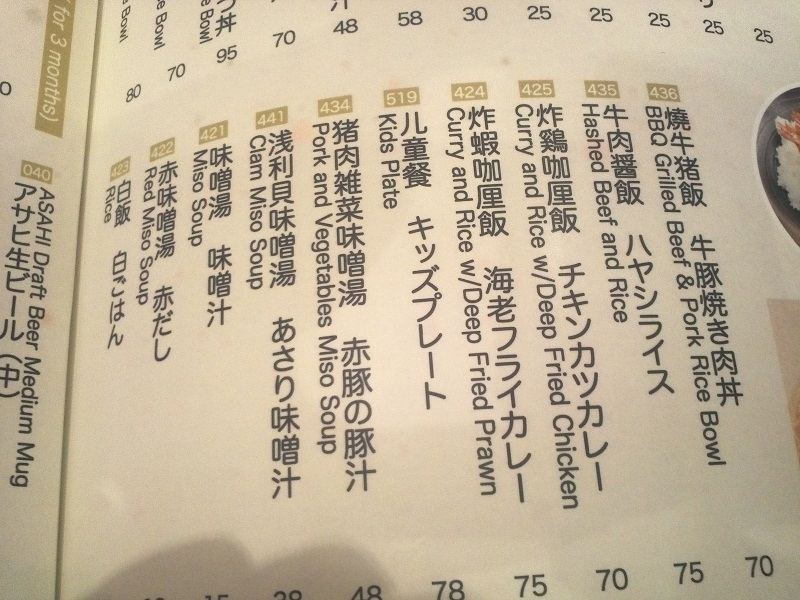 25
25
25
25
25
30
58
48
70
95
70
80
Bowl
Bowl
Bowl
丼
436 燒牛猪飯 牛豚焼き肉丼 70
BBQ Grilled Beef & Pork Rice Bowl
435 牛肉醤飯 ハヤシライス 75
Hashed Beef and Rice
425 炸鷄咖喱飯 チキンカツカレー 70
Curry and Rice w/Deep Fried Chicken
424 炸蝦咖喱飯 海老フライカレー 75
Curry and Rice w/Deep Fried Prawn
519 儿童餐 キッズプレート 78
Kids Plate
434 猪肉雑菜味噌湯 赤豚の豚汁 48
Pork and Vegetables Miso Soup
441 浅利貝味噌湯 あさり味噌汁
Clam Miso Soup
421 味噌湯 味噌汁 15
Miso Soup
422 赤味噌湯 赤だし
Red Miso Soup
423 白飯 白ごはん
Rice
for 3 months)
040 ASAHI Draft Beer Medium Mug
アサヒ生ビール (中)